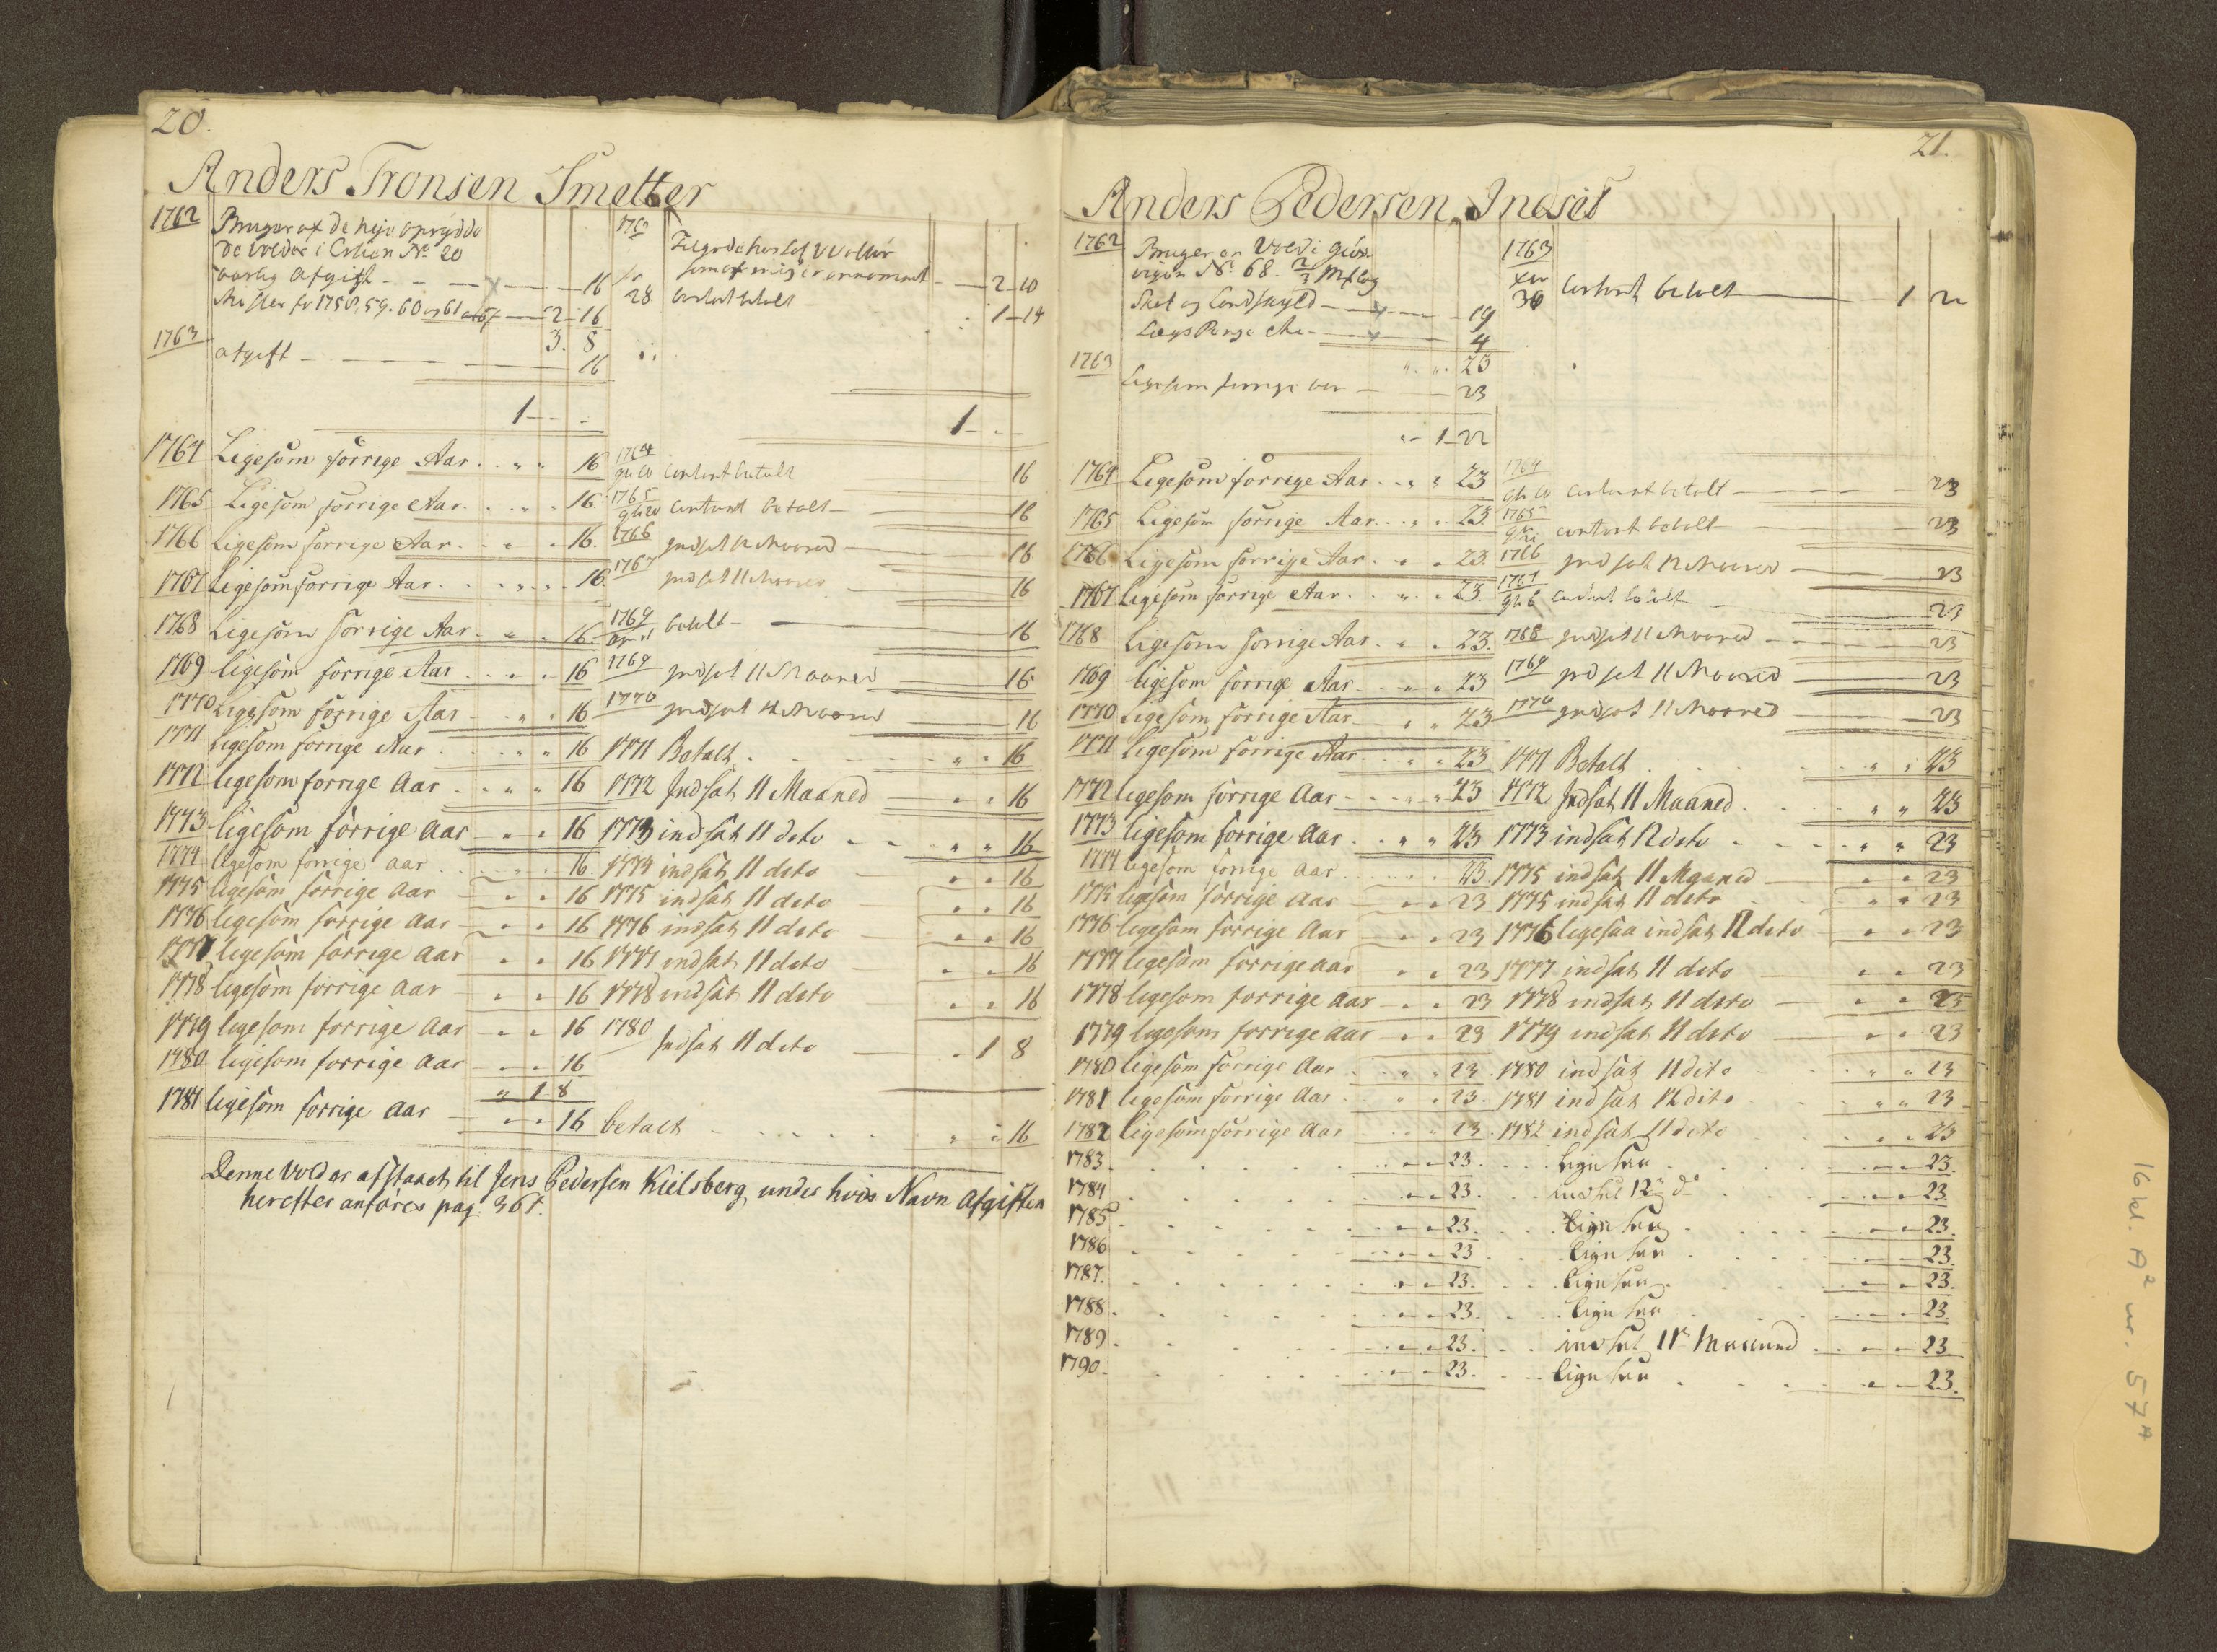 20.
Anders Tronsen Smelter
1762 Bruger af de nye oprydde
de Volder i No 20
aarlig Afgift 16
Rester for 1758, 59. 60 og 61 2 16
3. 8
1763 afgift 16
1
1764 Ligesom forrige Aar 16
1765 Ligesom forrige Aar 16
1766 Ligesom forrige Aar 16.
1767 Ligesom forrige Aar 16
1768 Ligesom forrige Aar 16
1769 ligesom forrige Aar 16
1770 Ligesom forrige Aar 16
1771 ligesom forrige Aar 16
1772 ligesom forrige Aar 16
1773 ligesom forrige Aar 16
1774 ligesom forrige aar 16
1775 ligesom forrige Aar 16
1776 ligesom forrige Aar 16
1777 ligesom forrige Aar 16
1778 ligesom forrige Aar 16
1779 ligesom forrige Aar 16
1780 ligesom forrige Aar 16
" 1 8
1781 ligesom forrige Aar 16
1763
2 10
28 contant betalt 1 14
1
1764 contant betalt 16
1765 contant betalt 16
1766 indsat 12 Maaned 16
1767 indsat 11 Maaned 16
1769 betalt 16
1769 indsat 11 Maaned 16
1770 indsat 12 Maaned 16
1771 Betalt 16
1772 Indsat 11 Maaned 16
1773 indsat 11 dito 16
1774 indsat 11 dito 16
1775 indsat 11 dito 16
1776 indsat 11 dito 16
1777 indsat 11 dito 16
1778 indsat 11 dito 16
1780 Indsat 11 dito 1 8
betalt 16
Denne Vold er afstaaet til Jens Pedersen Kielsberg under hvis Navn Afgiften
herefter anføres pag. 361.
21.
Anders Pedersen Indset
1762 Bruger en Vold i
No 68.
Skat og Landskyld 19
4
" " 23
1763 Ligesom forrige aar 23
" 1 22
1764 Ligesom forrige Aar 23
1765 Ligesom forrige Aar 23
1766 Ligesom forrige Aar 23
1767 Ligesom forrige Aar 23.
1768 Ligesom forrige Aar 23.
1769 ligesom forrige Aar 23
1770 Ligesom forrige Aar 23
1771 ligesom forrige Aar 23
1772 ligesom forrige Aar 23
1773 ligesom forrige Aar 23
1774 ligesom forrige Aar 23
1775 ligesom forrige Aar 23
1776 ligesom forrige Aar 23
1777 ligesom forrige aar 23
1778 ligesom forrige Aar 23
1779 ligesom forrige Aar 23
1780 ligesom forrige Aar 23
1781 ligesom forrige Aar 23.
1782 ligesom forrige Aar 23.
1783 23.
1784 23.
1785 23.
1786 23
1787. 23.
1788 23.
1789 23.
1790 23.
1763
30 contant betalt 1 22
1764 contant betalt 23
1765 contant betalt 23
1766 indsat 12 Maaned 23
1767 contant betalt 23
1768 indsat 11 Maaned 23
1769 indsat 11 Maaned 23
1770 indsat 11 Maaned 23
1771 Betalt 23
1772 Indsat 11 Maaned 23
1773 indsat 12 dito 23
1775 indsat 11 Maaned 23
1775 indsat 11 dito 23
1776 ligesaa indsat 12 dito 23
1777 indsat 11 dito 23
1778 indsat 11 dito 23
1779 indsat 11 dito 23
1780 indsat 11 dito 23
1781 indsat 12 dito 23
1782 indsat 11 dito 23
ligesaa 23.
indsat 12 do 23.
ligesaa 23.
ligesaa 23.
ligesaa 23.
ligesaa 23.
indsat 11 Maaned 23
ligesaa 23.
16 kl. A2 nr. 57A